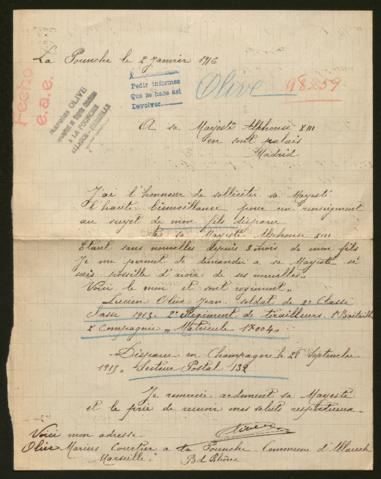 La Pounche le 2 janvier 1916
Fecho
e.a.e.
OLIVE
A LA POUNCHE
ALLAUCH-MARSEILLE
Pedir informes
Que se hace así
Devolver
Olive
98259
A sa Majesté Alphonse XIII
en sont palais
Madrid
J'ai l'honneur de solliciter sa Majesté
l'haute bienveillance pour un renseignement
au sujet de mon fils disparu
a sa Majesté Alphonse XIII
Etant sans nouvelles depuis 3 mois de mon fils
Je me permet de demander a sa Majesté si
sois possible d'avoir de ses nouvelles
Voici le nom et sont regiment
Lucien Olive Jean soldat de 2e Classe
Classe 1913 2e Regiment de tirailleurs 1e Bataillon
2 Compagnie Matricule 17004
Disparu en Champagne le 28 Septembre
1915 Secteur Postal 132
Je remercie ardument sa Majesté
et le prie de recevoir mes saluts respectueux
Voici mon adresse
Olive Marius Courtier a La Pounche Commune d'Allauch
Marseille B. d. Rhône